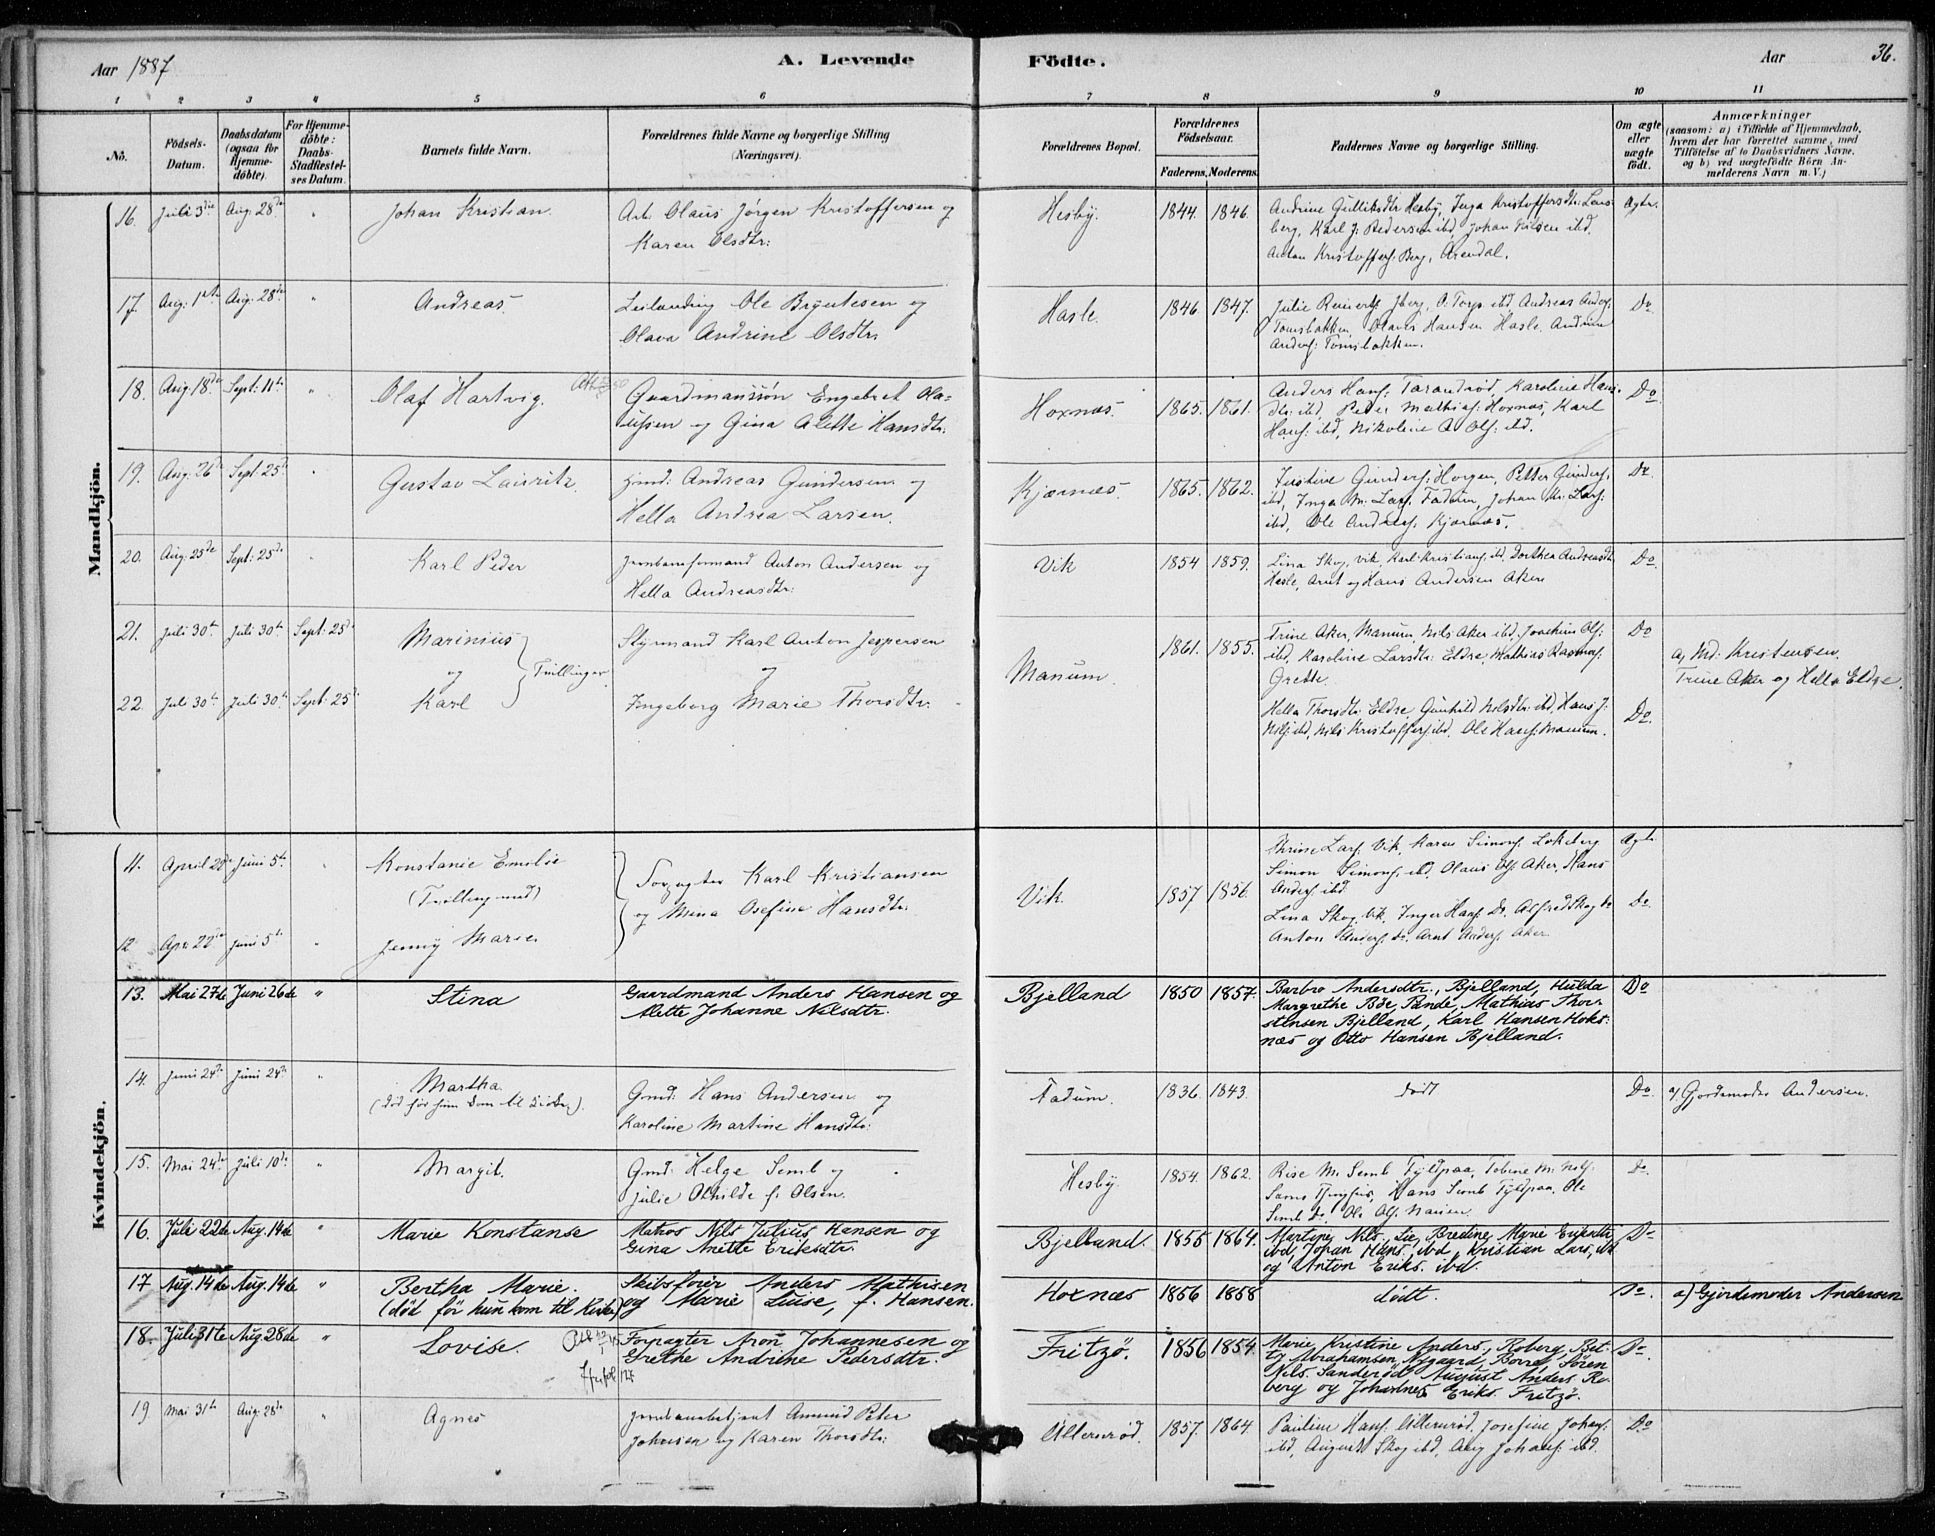 Aar 1887
A. Levende
Födte.
Aar
36.
1 2 3 4 5 6 7 8 9 10 11
No.
Födsels-
Datum.
Daabsdatum
(ogsaa for
Hjemme-
döbte).
For Hjemme-
döbte:
Daabs-
Stadfæstel-
ses Datum.
Barnets fulde Navn.
Forældrenes fulde Navne og borgerlige Stilling
(Næringsvei).
Forældrenes Bopæl.
Forældrenes
Födselsaar.
Faderens. Moderens.
Faddernes Navne og borgerlige Stilling.
Om ægte
eller
uægte
födt.
Anmærkninger
(saasom: a) i Tilfælde af Hjemmedaab,
hvem der har forrettet samme, med
Tilföielse af to Daabsvidners Navne,
og b) ved uægtefödte Börn An-
melderens Navn m. V.)
Mandkjön.
16. Juli 3die Aug: 28de " Johan Kristian. Arb. Olaus Jørgen Kristoffersen og
Karen Olsdtr:
Hesby. 1844. 1846. Andrine Gulliksdtr Hesby, Inga Kristoffersdtr:
berg, Karl J: Pedersen ibd, Johan Nilsen ibd.
Anton Kristoffers: Berg, Arendal.
17. Aug: 1ste Aug: 28de " Andreas. Leilending Ole Bryntesen og
Olava Andrine Olsdtr.
Hasle. 1846 1847. Julie O. Torp ibd Andreas Anders:
Tomsbakken, Olaves Hansen Hasle. Andrine
Anders: Tomsbakken.
Do
18. Aug: 18de Sept: 11te " Olaf Hartvig. Gaardmanssøn Engebret Ola-
ussen og Gina Alette Hansdtr:
Hoxnæs. 1865. 1861. Anders Hans: Tarandrød, Karoline Hans-
dtr: ibd, Peder Mathias: Hoxnæs, Karl
Hans: ibd, Nikoline A. Ols: ibd.
Do
19. Aug: 26de Sept: 25de " Gustav Lauritz. Gmd: Andreas Gundersen og
Hella Andrea Larsen.
Kjærnæs. 1865. 1862. Justine Gunders: Horgen, Petter Gunders:
ibd, Inga M. Lars: Fadum, Johan M. Lars:
ibd, Ole Andreas: Kjærnæs.
Do
20. Aug: 25de Sept: 25de " Karl Peder Jernbaneformand Anton Andersen og
Hella Andreasdtr:
Vik 1854 1859. Lina Skog, Vik, Karl Kristians: ibd, Dorthea Andreasdtr
Hasle, Arnt og Hans Andersen Aker
Do.
21. Juli 30te Juli 30te Sept: 25de Marinius
og
Tvillinger
Styrmand Karl Anton Jespersen
og
Manum. 1861. 1855. Trine Aker, Manum, Nils Aker ibd, Joachim Ols:
ibd, Karoline Larsdtr: Eldre, Mathias Rasmus:
Grette.
Do
a, Md: Kristensen.
Trine Aker og Hella Eldre.
22. Juli 30te Juli 30te Sept: 25de Karl Ingeborg Marie Thorsdtr.
Hella Thorsdtr: Eldre, Gunhild Nilsdtr: ibd, Hans J:
Nils: ibd, Nils Kristoffers: ibd, Ole Hans: Manum.
Do.
Kvindekjön.
11. April 22de Juni 5te " Konstanse Emilie
(Tvilling med)
Forpagter Karl Kristiansen
og Mina Osefine Hansdtr:
Vik. 1857 1856. Thrine Lars: Vik, Karen Simons: Lokeberg
Simon Simons: ibd. Olaus Ols: Aker, Hans
Anders: ibd.
12 Apr: 22de Juni 5te " Jenny Marie
Lina Skog, Vik, Inger Hans: Do, Alfred Skog Do
Anton Anders: do. Arnt Anders: Aker
Do.
13. Mai 27de Juni 26de " Stina Gaardmand Anders Hansen og
Alette Johanne Nilsdtr.
Bjelland 1850 1857. Barbro Andersdtr., Bjelland, Hulda
Margrethe Böe, Pande, Mathias Thor-
stensen Bjelland, Karl Hansen Hoks-
næs og Otto Hansen Bjelland.
Do
14. Juni 24de Juni 24de " Martha.
(död før hun kom til Kirken).
Gmd: Hans Andersen og
Karoline Martine Hansdtr:
Fadum. 1836. 1843. dødt Do. a, Gjordemoder Andersen.
15. Mai 24de Juli 10de " Margit. Gmd: Helge Semb og
Julie Othilde f. Olsen.
Hesby. 1854. 1862. Rise M. Semb Fyldpaa, Tobine M. Nils:
Hans Semb Fyldpaa, Ole
Semb do, Ole Ols:
Do.
16. Juli 22de Aug. 14de " Marie Konstanse Matros Nils Julius Hansen og
Gina Anette Eriksdtr.
Bjelland. 1855 1864. Martine Nils., Lie, Bredine Marie Eriksdtr
ibd, Johan Hans. ibd, Kristian Lars, ibd
og Anton Eriks. ibd.
Do
17 Aug. 14de Aug. 14de " Bertha Marie.
(död för hun kom til Kirken)
Skibsförer Anders Mathisen
og Marie Luise, f. Hansen.
Hoxnæs 1856 1858 dödt. Do. a) Gjördemoder Andersen
18. Juli 31te Aug. 28de " Lovise. Forpagter Aron Johannesen og
Grethe Andrine Pedersdtr.
Fritzö. 1856 1854. Marie Kristine Anders., Roberg, Bet-
ty Abrahamsen, Nygaard, Borre, Sören
Nils. Sanderöd, August Anders. Ro-
berg og Johannes Eriks. Fritzö.
Do.
19 Mai 31te Aug: 28de " Agnes Jernbanebetjent Amund Peter
Johnsen og Karen Thorsdtr:
Ullernrød. 1857. 1864. Pauline Hans: Ullernrød, Josefine Johans:
ibd, August Skog ibd, Aug Johans: ibd.
Do